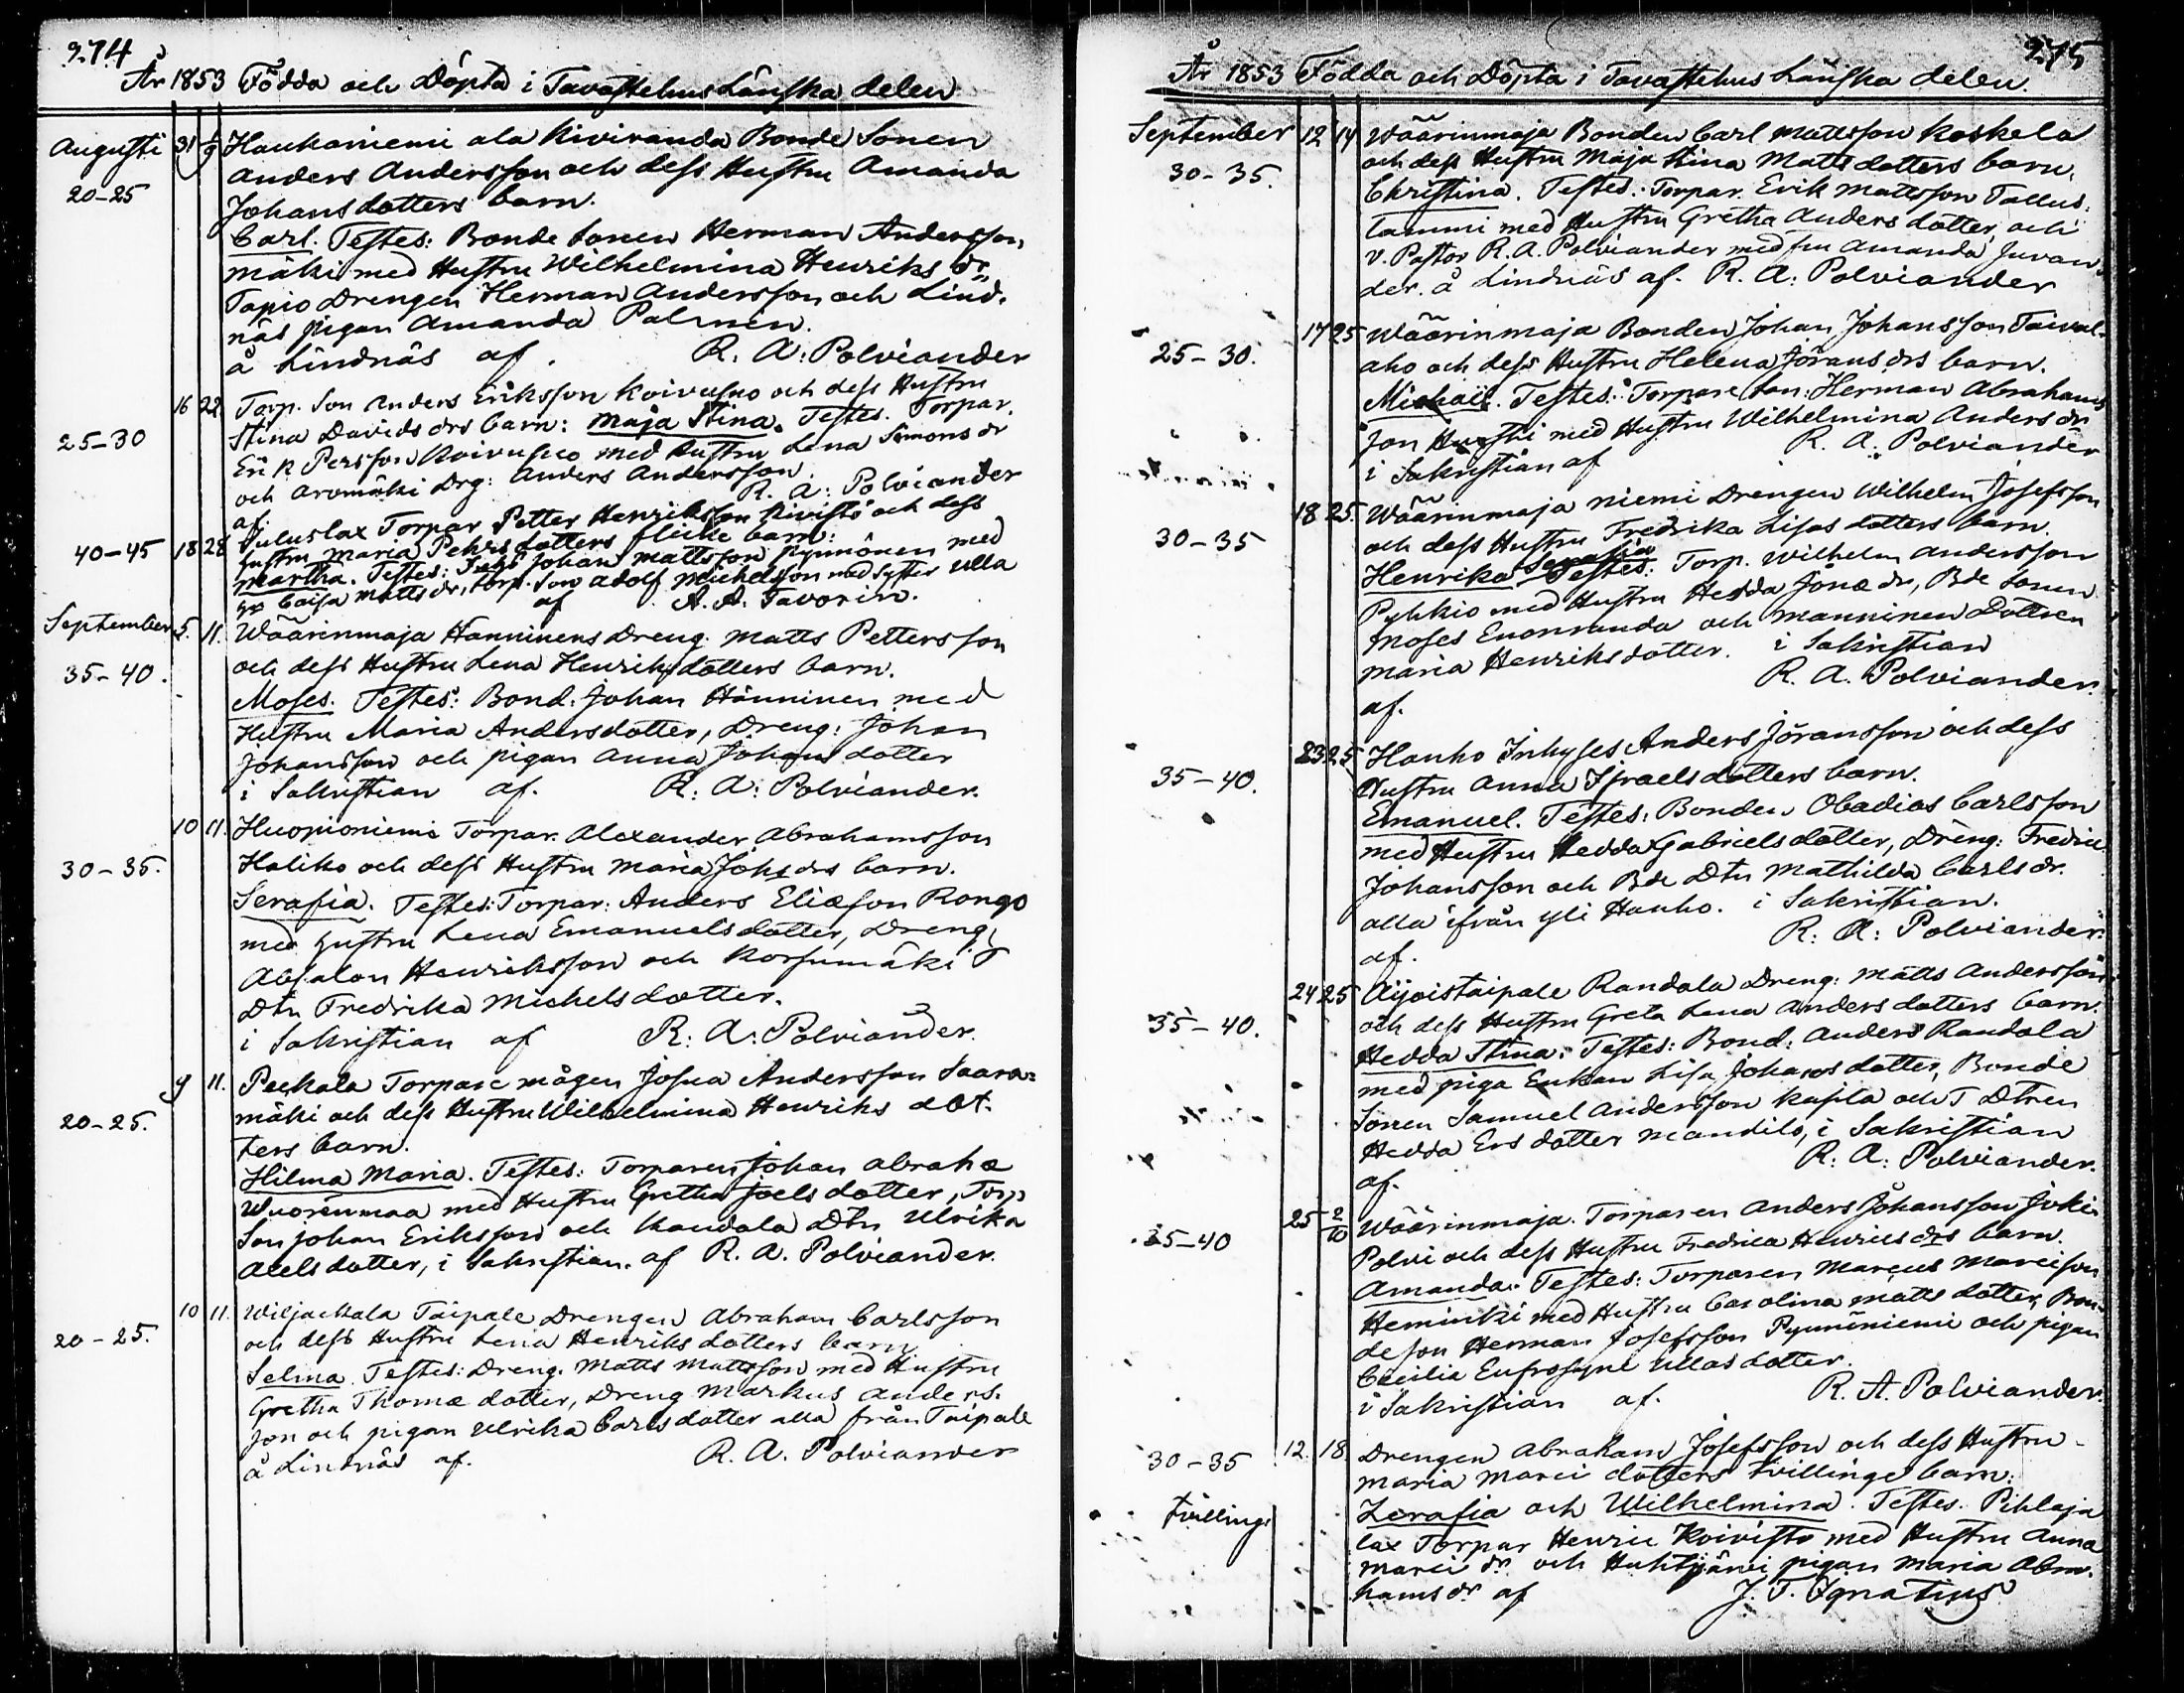 274
År 1853 Födda och Döpta i Tavastehus Länska delen
Augusti 31 Haukaniemi ala Kiviranda Bonde Sonen
20-25 Anders Andersson och dess Hustru Amanda
Johansdotters barn.
Carl. Testes: Bonde Sonen Herman Andersson
mäki med Hustru Wilhelmina Henriks dr
Tapio Drengen Herman Andersson och Lind-
näs pigan Amanda Palmén.
å Lindnäs af. R. A: Polviander
16 22 Torp. Son Anders Eriksson Koivusuo och dess Hustru
25-30 Stina Davids drs barn: Maja Stina. Testes. Torpar.
Erik Persson Koivusuo med Hustru Lena Simons dr
och Aromäki Drg: Anders Andersson
af. R. A: Polviander
40-45 18 28 Puluslax Torpar Petter Henriksson Kivistö och dess
Hustru Maria Pehrs dotters flicke barn:
Martha. Testes: Johan Mattsson Pynnönen med
Caisa Matts dr, Torp. Son Adolf Michelsson med Syster Ulla
af A. A. Favorin.
September 5. 11. Wäärinmaja Hanninens Dreng. Matts Pettersson
35-40. och dess Hustru Lena Henriksdotters barn.
Moses. Testes: Bond. Johan Hänninen med
Hustru Maria Andersdotter, Dreng: Johan
Johansson och pigan Anna Johans dotter
i Sakristian af. R: A: Polviander.
10 11. Huopioniemi Torpar. Alexander Abrahamsson
30-35. Haliko och dess Hustru Maria Johs drs barn.
Serafia. Testes: Torpar: Anders Eliæson Rongo
med Hustru Lena Emanuels dotter, Dreng
Absalon Henriksson och Korsumäki
Dtn Fredrika Michels dotter.
i Sakristian af R: A: Polviander.
9 11. Peckala Torpare mågen Josua Andersson Saara-
20-25. mäki och dess Hustru Wilhelmina Henriks dot-
ters barn.
Hilma Maria. Testes: Torparen Johan Abraha
Wuorenmaa med Hustru Gretha Joels dotter, Torp
Son Johan Eriksson och Kaudala Dtn Ulrika
Axels dotter, i Sakristian. af R. A. Polviander.
10 11. Wiljackala Taipale Drengen Abraham Carlsson
20-25. och dess Hustru Lena Henriks dotters barn
Selma. Testes: Dreng. Matts Mattsson med Hustru
Gretha Thomæ dotter, Dreng Markus Anders-
son och pigan Ulrika Carls dotter alla från Taipale
å Lindnäs af. R. A. Polviander
275
År 1853 Födda och Döpta i Tavastehus Länska delen.
September 12 14 Wäärinmaja Bonden Carl Mattsson Koskela
30-35. och dess Hustru Maja Stina Matts dotters barn.
Christina. Testes: Torpar. Erik Mattsson Tallus:
lammi med Hustru Gretha Anders dotter, och
v. Pastor R. A. Polviander med fru Amanda Juvan-
der. å Lindnäs af. R. A: Polviander
17 25 Wäärinmaja Bonden Johan Johansson Taival-
25-30. aho och dess Hustru Helena Jörans drs barn.
Michaël. Testes: Torpare Son: Herman Abrahams
son med Hustru Wilhelmina Anders dr
i Sakristian af R. A. Polviander
18 25. Wäärinmaja Niemi Drengen Wilhelm Josefsson
30-35 och dess Hustru Fredrika Lisas dotters barn.
Henrika Serafia Testes: Torp. Wilhelm Andersson
Pyhkio med Hustru Hedda Jönæ dr, Bde Sonen
Moses Enonranda och Manninen Dottren
Maria Henriks dotter. i Sakristian
af. R. A. Polviander.
23 25 Hanho Inhyses Anders Jöransson och dess
35-40. Hustru Anna Israels dotters barn.
Emanuel. Testes: Bonden Obadias Carlsson
med Hustru Hedda Gabriels dotter, Dreng: Fredric
Johansson och Bde Dtn Mathilda Carls dr.
alla ifrån Yli Hanho. i Sakristian.
af. R: A: Polviander.
24 25 Äijoistaipale Randala Dreng: Matts Andersson
35-40. och dess Hustru Greta Lena Anders dotters barn.
Hedda Stina. Testes: Bond: Anders Randala
med piga Enkan Lisa Johans dotter, Bonde
Sonen Samuel Andersson Kapila och T Dtren
Hedda Ers dotter Mandila, i Sakristian
af. R: A: Polviander.
25 2/10 Wäärinmaja. Torparen Anders Johansson Joki
35-40 Polvi och dess Hustru Fredrica Henrics drs barn.
Amanda. Testes: Torparen Marcus Marcisson
Heminki med Hustru Carolina Matts dotter, Bon-
de son Herman Josefsson Pynnöniemi och pigan
Cecilia Eufrosyne Ullas dotter.
i Sakristian af. R. A. Polviander.
30-35 12. 18. Drengen Abraham Josefsson och dess Hustru
Maria Marci dotters tvillinge barn:
tvilling: Zerafia och Wilhelmina. Testes. Pihlaja
lax Torpar Henric Koivisto med Hustru Anna
Marci dr. och Huhtijärvi pigan Maria Abra-
hams dr. af J. F. Ignatius